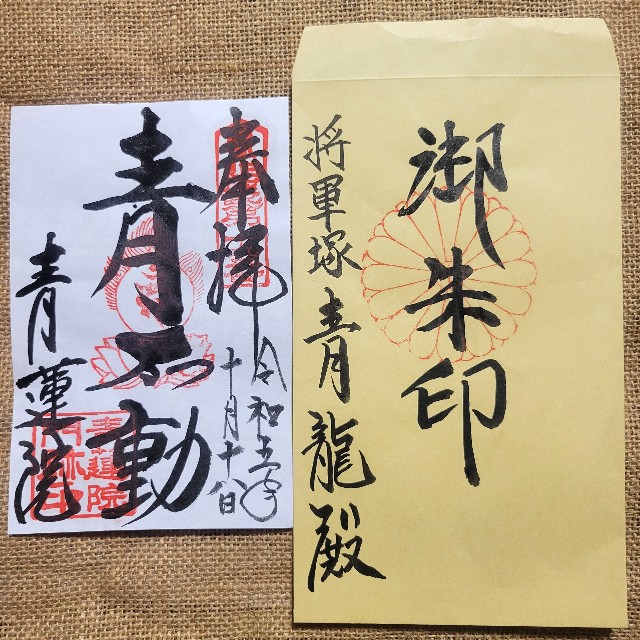 奉拝
令和五年
十月十八日
青不動
青蓮院
青蓮院
御朱印
将軍塚 青龍殿